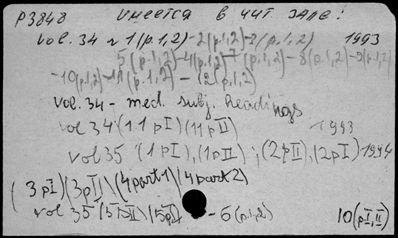 P3848 имеется в чит зале!
vol. 34 n 1(p.1,2)-2(p.1,2)-3(p.1,2) 1993
5(p.1,2)-(p.1,2)-7(p.1,2)-8(p.1,2)-9(p.1,2)
-10(p.1,2)-11(p.1,2)-12(p.1,2)
vol. 34 - med. subj. headings
vol 34 (11 pI)(11 pII) 1993
vol 35 (1 pI),(1 pII), (2 pII),(2 pI) 1994
(3 pI)(3 pII)(4 part 1)(4 part 2)
vol 35 (5 pII)(5 pI) - 6(p.1,2) 10(pI,II)